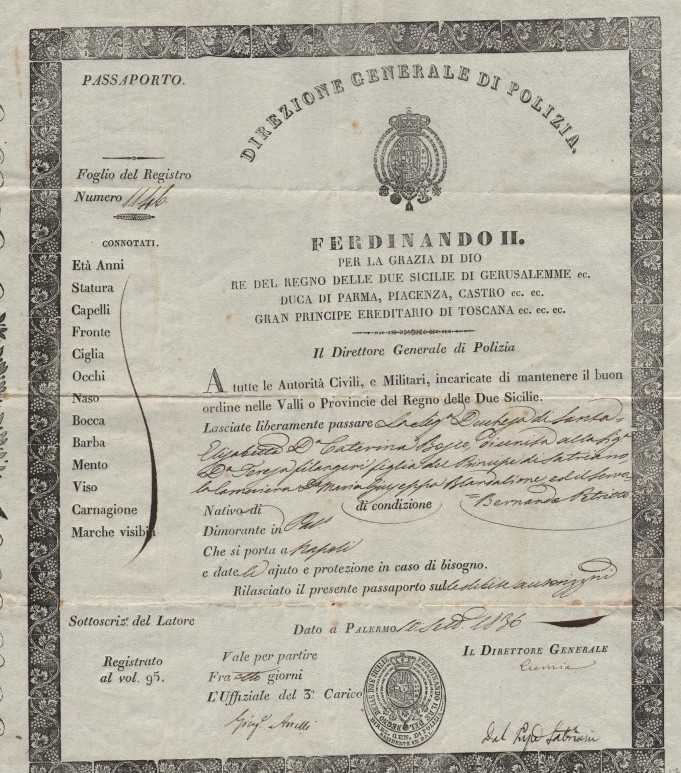 PASSAPORTO.
DIREZIONE GENERALE DI POLIZIA.
Foglio del Registro
Numero
CONNOTATI.
Età Anni
Statura
Capelli
Fronte
Ciglia
Occhi
Naso
Bocca
Barba
Mento
Viso
Carnagione
Marche visibili
FERDINANDO II.
PER LA GRAZIA DI DIO
RE DEL REGNO DELLE DUE SICILIE DI GERUSALEMME ec.
DUCA DI PARMA, PIACENZA, CASTRO ec. ec.
GRAN PRINCIPE EREDITARIO DI TOSCANA ec. ec. ec.
Il Direttore Generale di Polizia
A tutte le Autorità Civili, e Militari, incaricate di mantenere il buon
ordine nelle Valli o Provincie del Regno delle Due Sicilie.
Lasciate liberamente passare La Sig.a Duchessa di Santa
Elisabetta D.a Caterina Bosco, riunita alla Sig.a
D.a Teresa Filangeri figlia del Principe di Satriano
la cameriera D.a Maria Giuseppa ed il
Bernardo
Nativo di di condizione
Dimorante in
Che si porta a Napoli
e date le ajuto e protezione in caso di bisogno.
Rilasciato il presente passaporto sul
Sottoscriz. del Latore
Dato a PALERMO 1836
Registrato
al vol. 95.
Vale per partire
Fra otto giorni
L'Uffiziale del 3° Carico
IL DIRETTORE GENERALE